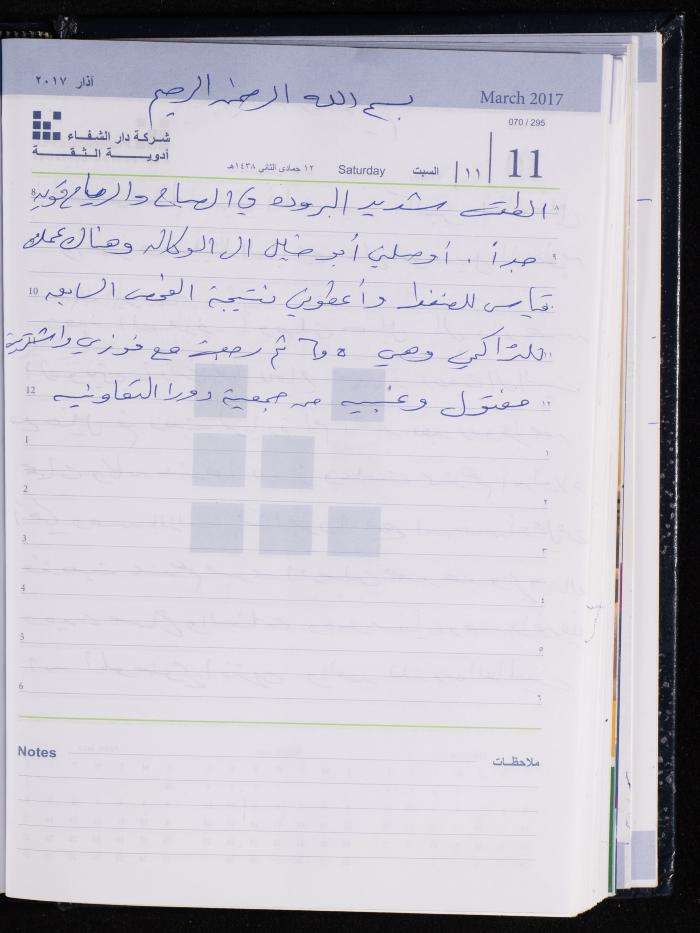 آذار ٢٠١٧
بسم الله الرحمن الرحيم
March 2017
070 / 295
شركة دار الشفاء
أدويـــة الـثـقـة
١٢ جمادى الثاني ١٤٣٨هـ
Saturday
السبت
١١
11
الطقس شديد البرودة في الصباح والرياح قويه
جداً . أوصلني أبو خليل الى الوكاله وهناك عملت
قياس للضغط وأعطوني نتيجة الفحص السابعه
للتراكمي وهي ٦ر٥ ثم رجعت مع فوزي واشتريت
مفتول وعنبيه من جمعية دورا التعاونيه
8
10
12
1
2
3
4
5
6
٨
٩
١٠
١١
١٢
١
٢
٣
٤
٥
٦
Notes
ملاحظــات